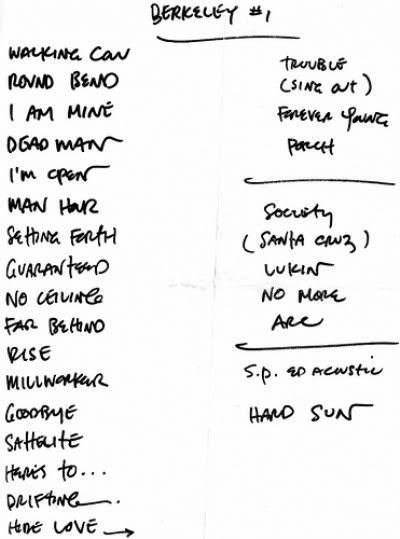 BERKELEY #1
WALKING COW
ROUND BEND
I AM MINE
DEAD MAN
I'M OPEN
MAN HOUR
SETTING FORTH
GUARANTEED
NO CEILING
FAR BEHIND
RISE
MILLWORKER
GOODBYE
SATTELITE
HERE'S TO...
DRIFTING
HIDE LOVE →
TROUBLE
(SING OUT)
FOREVER YOUNG
PORCH
SOCIETY
(SANTA CRUZ)
LUKIN
NO MORE
ARC
S.P. ED ACOUSTIC
HARD SUN